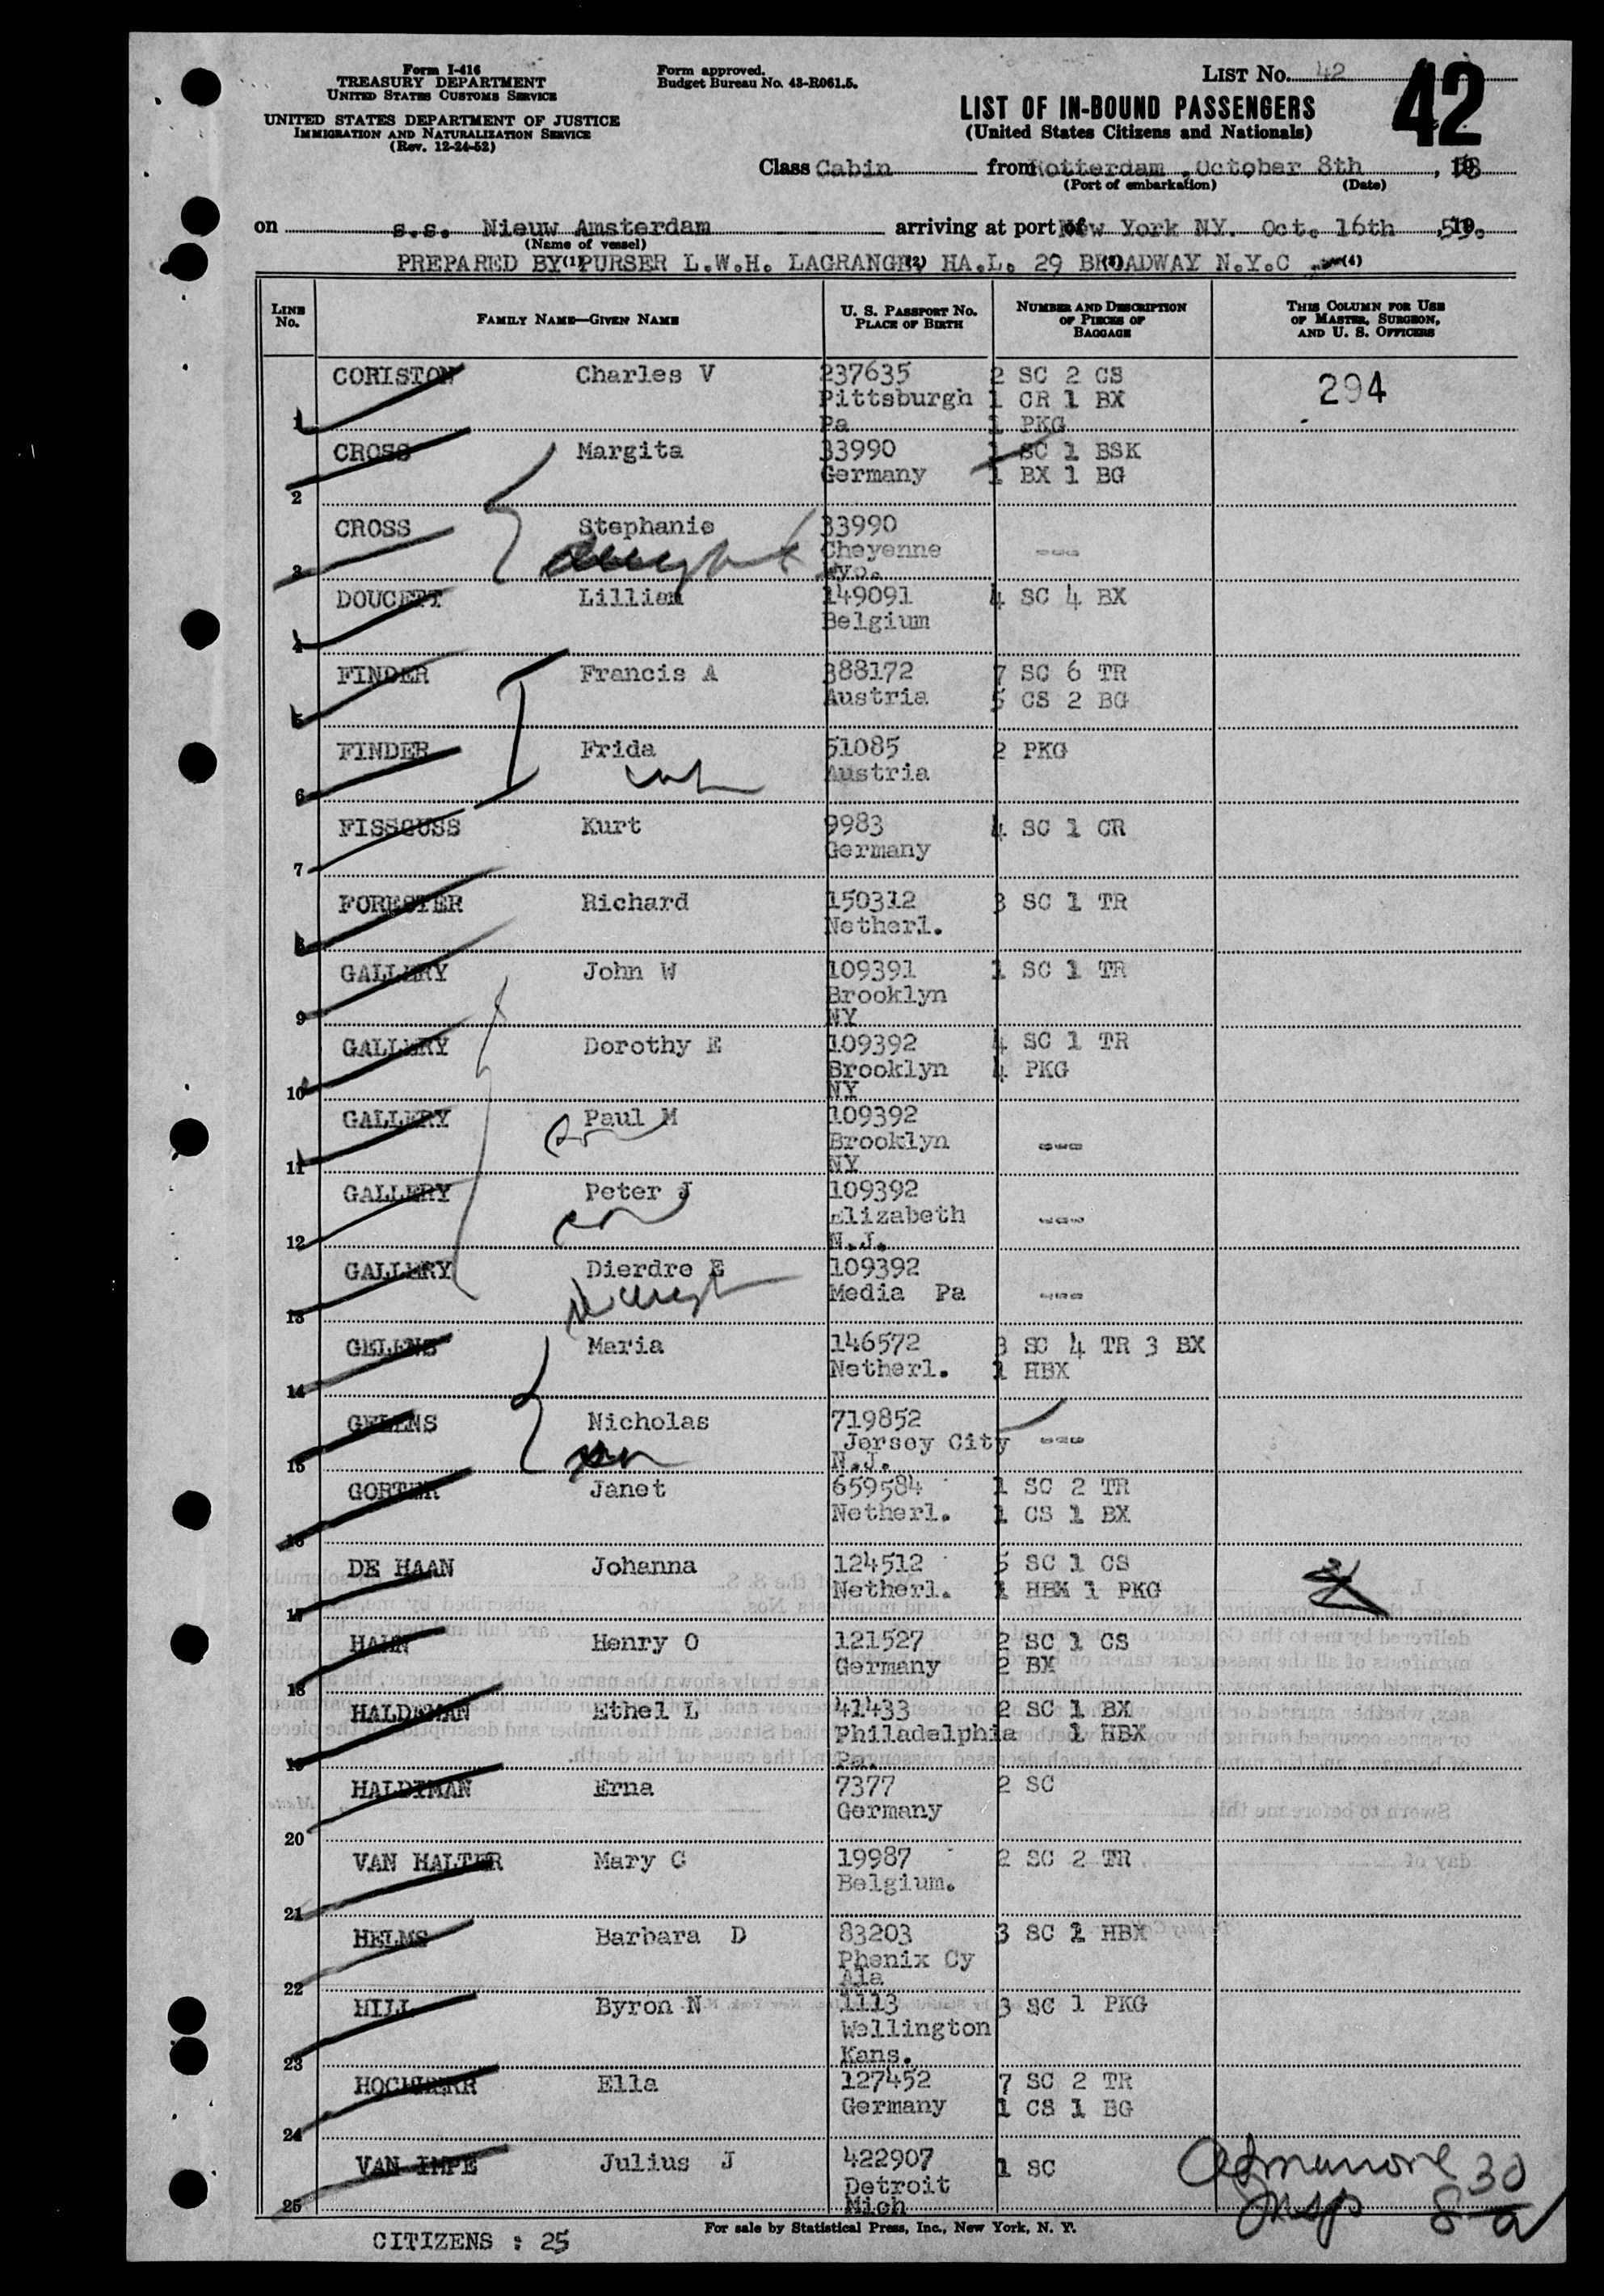 Form I-416
TREASURY DEPARTMENT
UNITED STATES CUSTOMS SERVICE
UNITED STATES DEPARTMENT OF JUSTICE
IMMIGRATION AND NATURALIZATION SERVICE
(Rev. 12-24-52)
Form approved.
Budget Bureau No. 43-R061.5.
LIST No. 42
42
LIST OF IN-BOUND PASSENGERS
(United States Citizens and Nationals)
Class Cabin from Rotterdam , October 8th , 19
(Port of embarkation) (Date)
on s.s. Nieuw Amsterdam arriving at port of New York NY. Oct. 16th , 19
(Name of vessel)
PREPARED BY (1) PURSER L.W.H. LAGRANGE (2) HA.L. 29 BROADWAY N.Y.C (4)
LINE No. FAMILY NAME—GIVEN NAME U. S. PASSPORT NO. PLACE OF BIRTH NUMBER AND DESCRIPTION OF PIECES OF BAGGAGE THIS COLUMN FOR USE OF MASTER, SURGEON, AND U. S. OFFICERS
1 CORISTON Charles V 237635 2 SC 2 CS 294
Pittsburgh 1 CR 1 BX
Pa 1 PKG
2 CROSS Margita 33990 1 SC 1 BSK
Germany 1 BX 1 BG
3 CROSS Stephanie 33990
Cheyenne ---
Wyo.
4 DOUCETT Lillian 149091 4 SC 4 BX
Belgium
5 FINDER Francis A 388172 7 SC 6 TR
Austria 5 CS 2 BG
6 FINDER Frida 51085 2 PKG
Austria
7 FISSGUSS Kurt 9983 4 SC 1 CR
Germany
8 FORESTER Richard 150312 3 SC 1 TR
Netherl.
9 GALLERY John W 109391 1 SC 1 TR
Brooklyn
NY
10 GALLERY Dorothy E 109392 4 SC 1 TR
Brooklyn 4 PKG
NY
11 GALLERY Paul M 109392
son Brooklyn ---
NY
12 GALLERY Peter J 109392
son Elizabeth ---
N.J.
13 GALLERY Dierdre E 109392
Media Pa ---
14 GELENS Maria 146572 3 SC 4 TR 3 BX
Netherl. 1 HBX
15 GELENS Nicholas 719852
son Jersey City ---
N.J.
16 GORTER Janet 659584 1 SC 2 TR
Netherl. 1 CS 1 BX
17 DE HAAN Johanna 124512 5 SC 1 CS
Netherl. 1 HBX 1 PKG
18 HAHN Henry O 121527 2 SC 1 CS
Germany 2 BX
19 HALDEMAN Ethel L 41433 2 SC 1 BX
Philadelphia 1 HBX
Pa.
20 HALDIMAN Erna 7377 2 SC
Germany
21 VAN HALTER Mary C 19987 2 SC 2 TR
Belgium.
22 HELMS Barbara D 83203 3 SC 1 HBX
Phenix Cy
Ala
23 HILL Byron N 1113 3 SC 1 PKG
Wellington
Kans.
24 HOCHHERR Ella 127452 7 SC 2 TR
Germany 1 CS 1 BG
25 VAN IMPE Julius J 422907 1 SC
Detroit
Mich
For sale by Statistical Press, Inc., New York, N. Y.
CITIZENS : 25